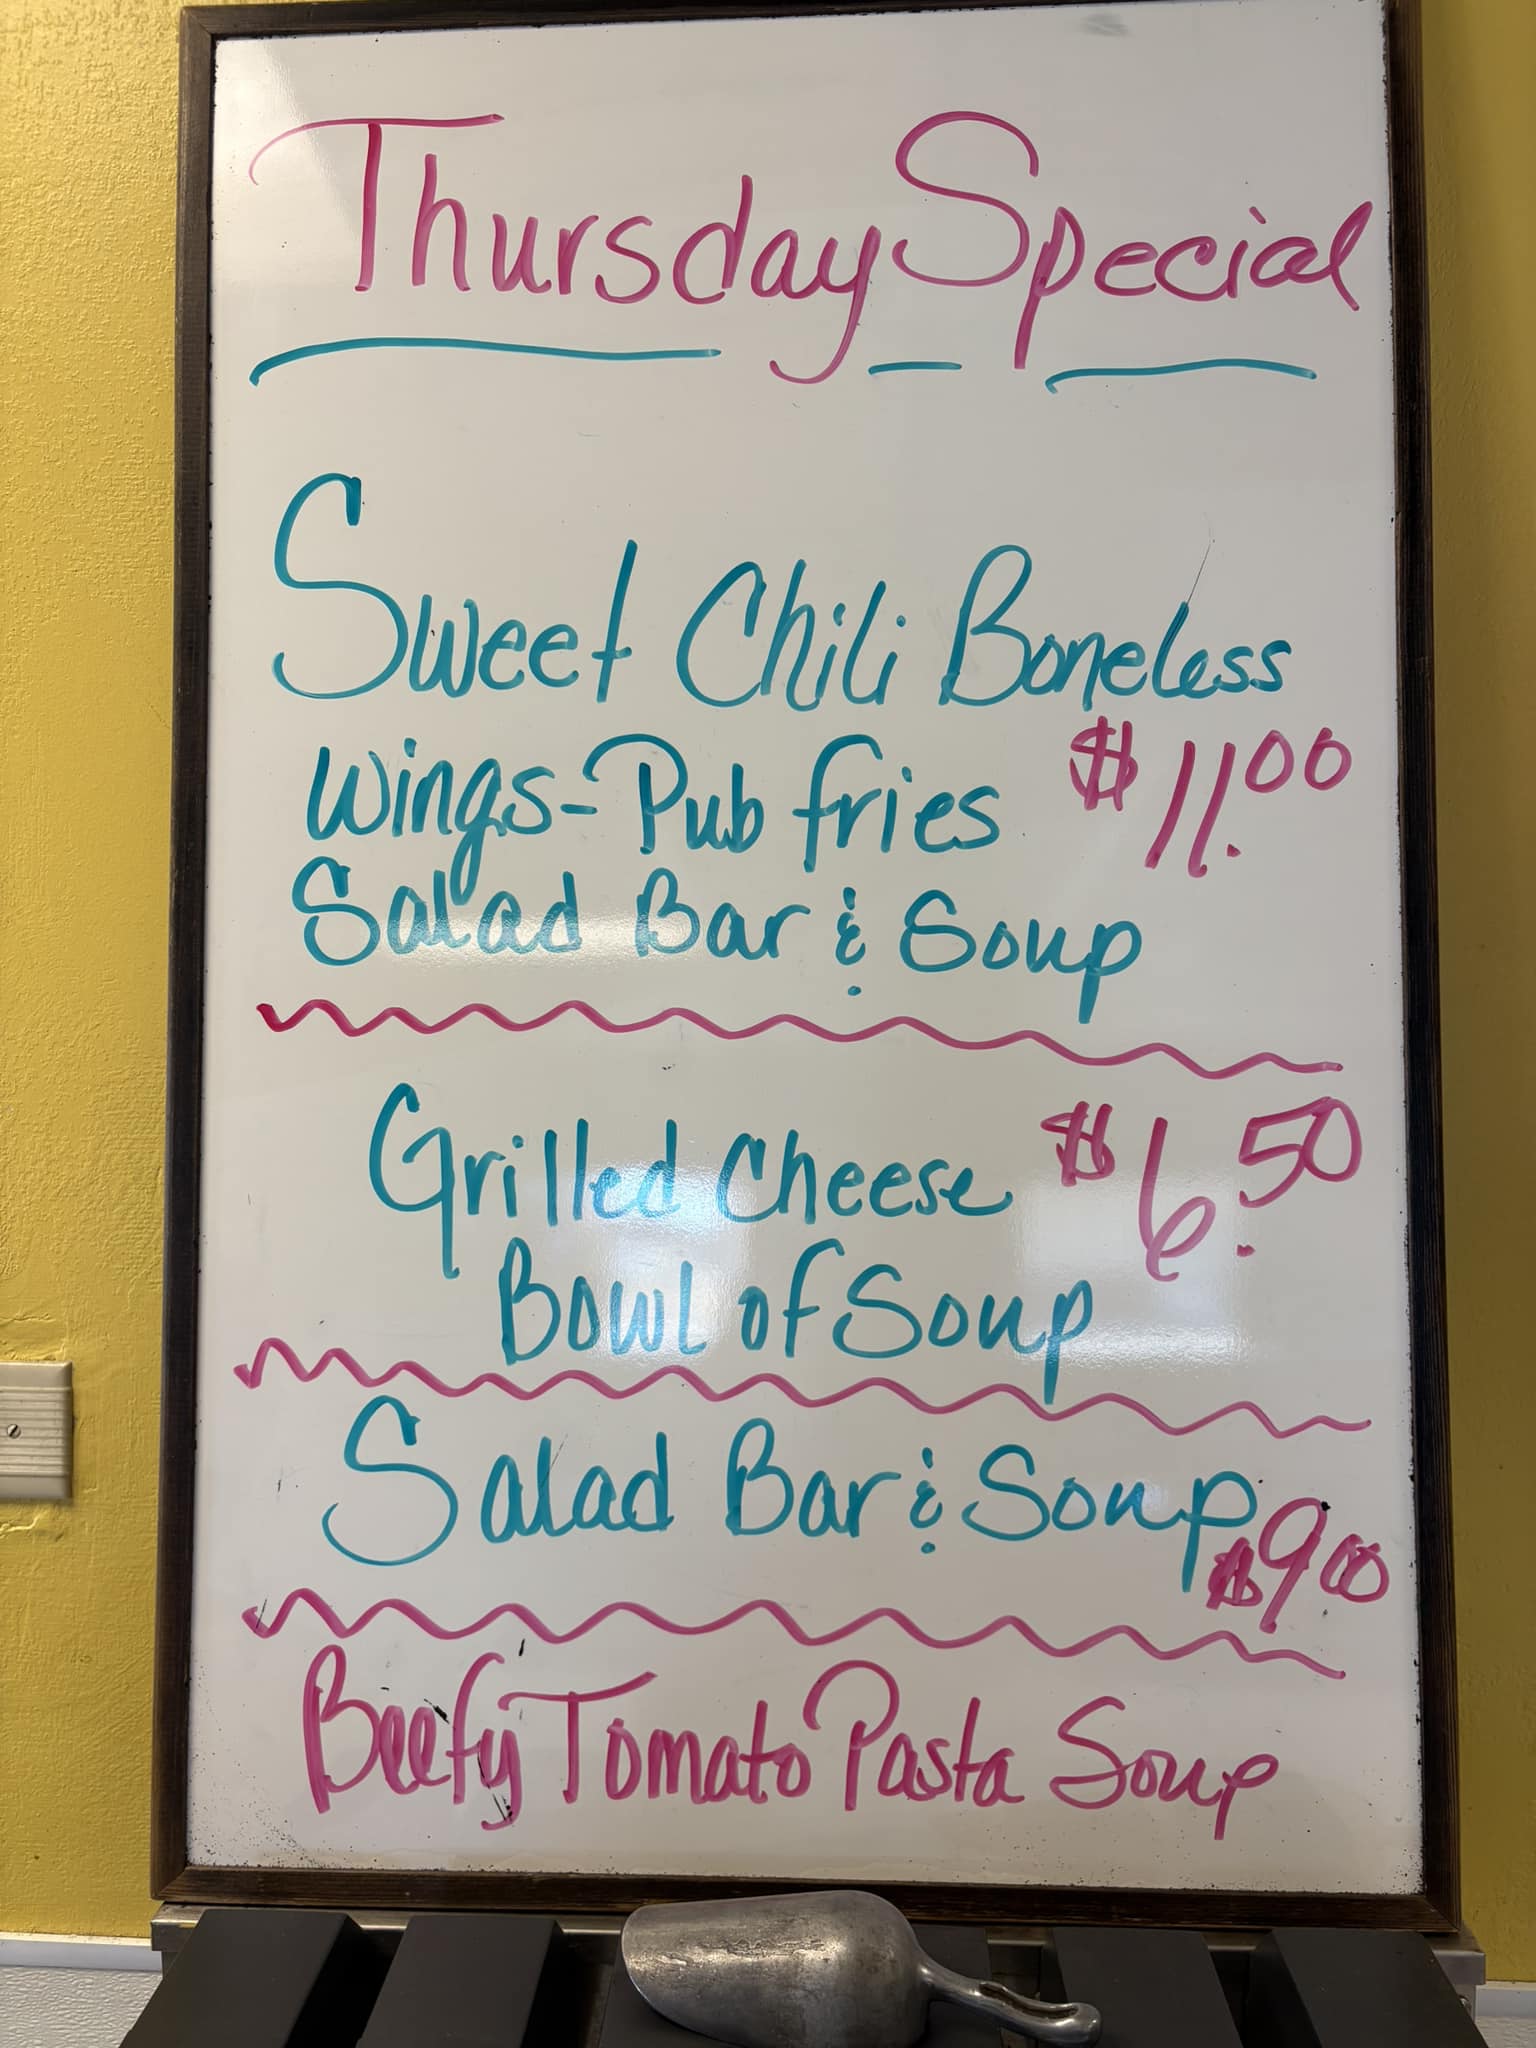 Thursday Special
Sweet Chili Boneless
Wings - Pub fries $11.00
Salad Bar & Soup
Grilled Cheese $6.50
Bowl of Soup
Salad Bar & Soup
$9.00
Beefy Tomato Pasta Soup